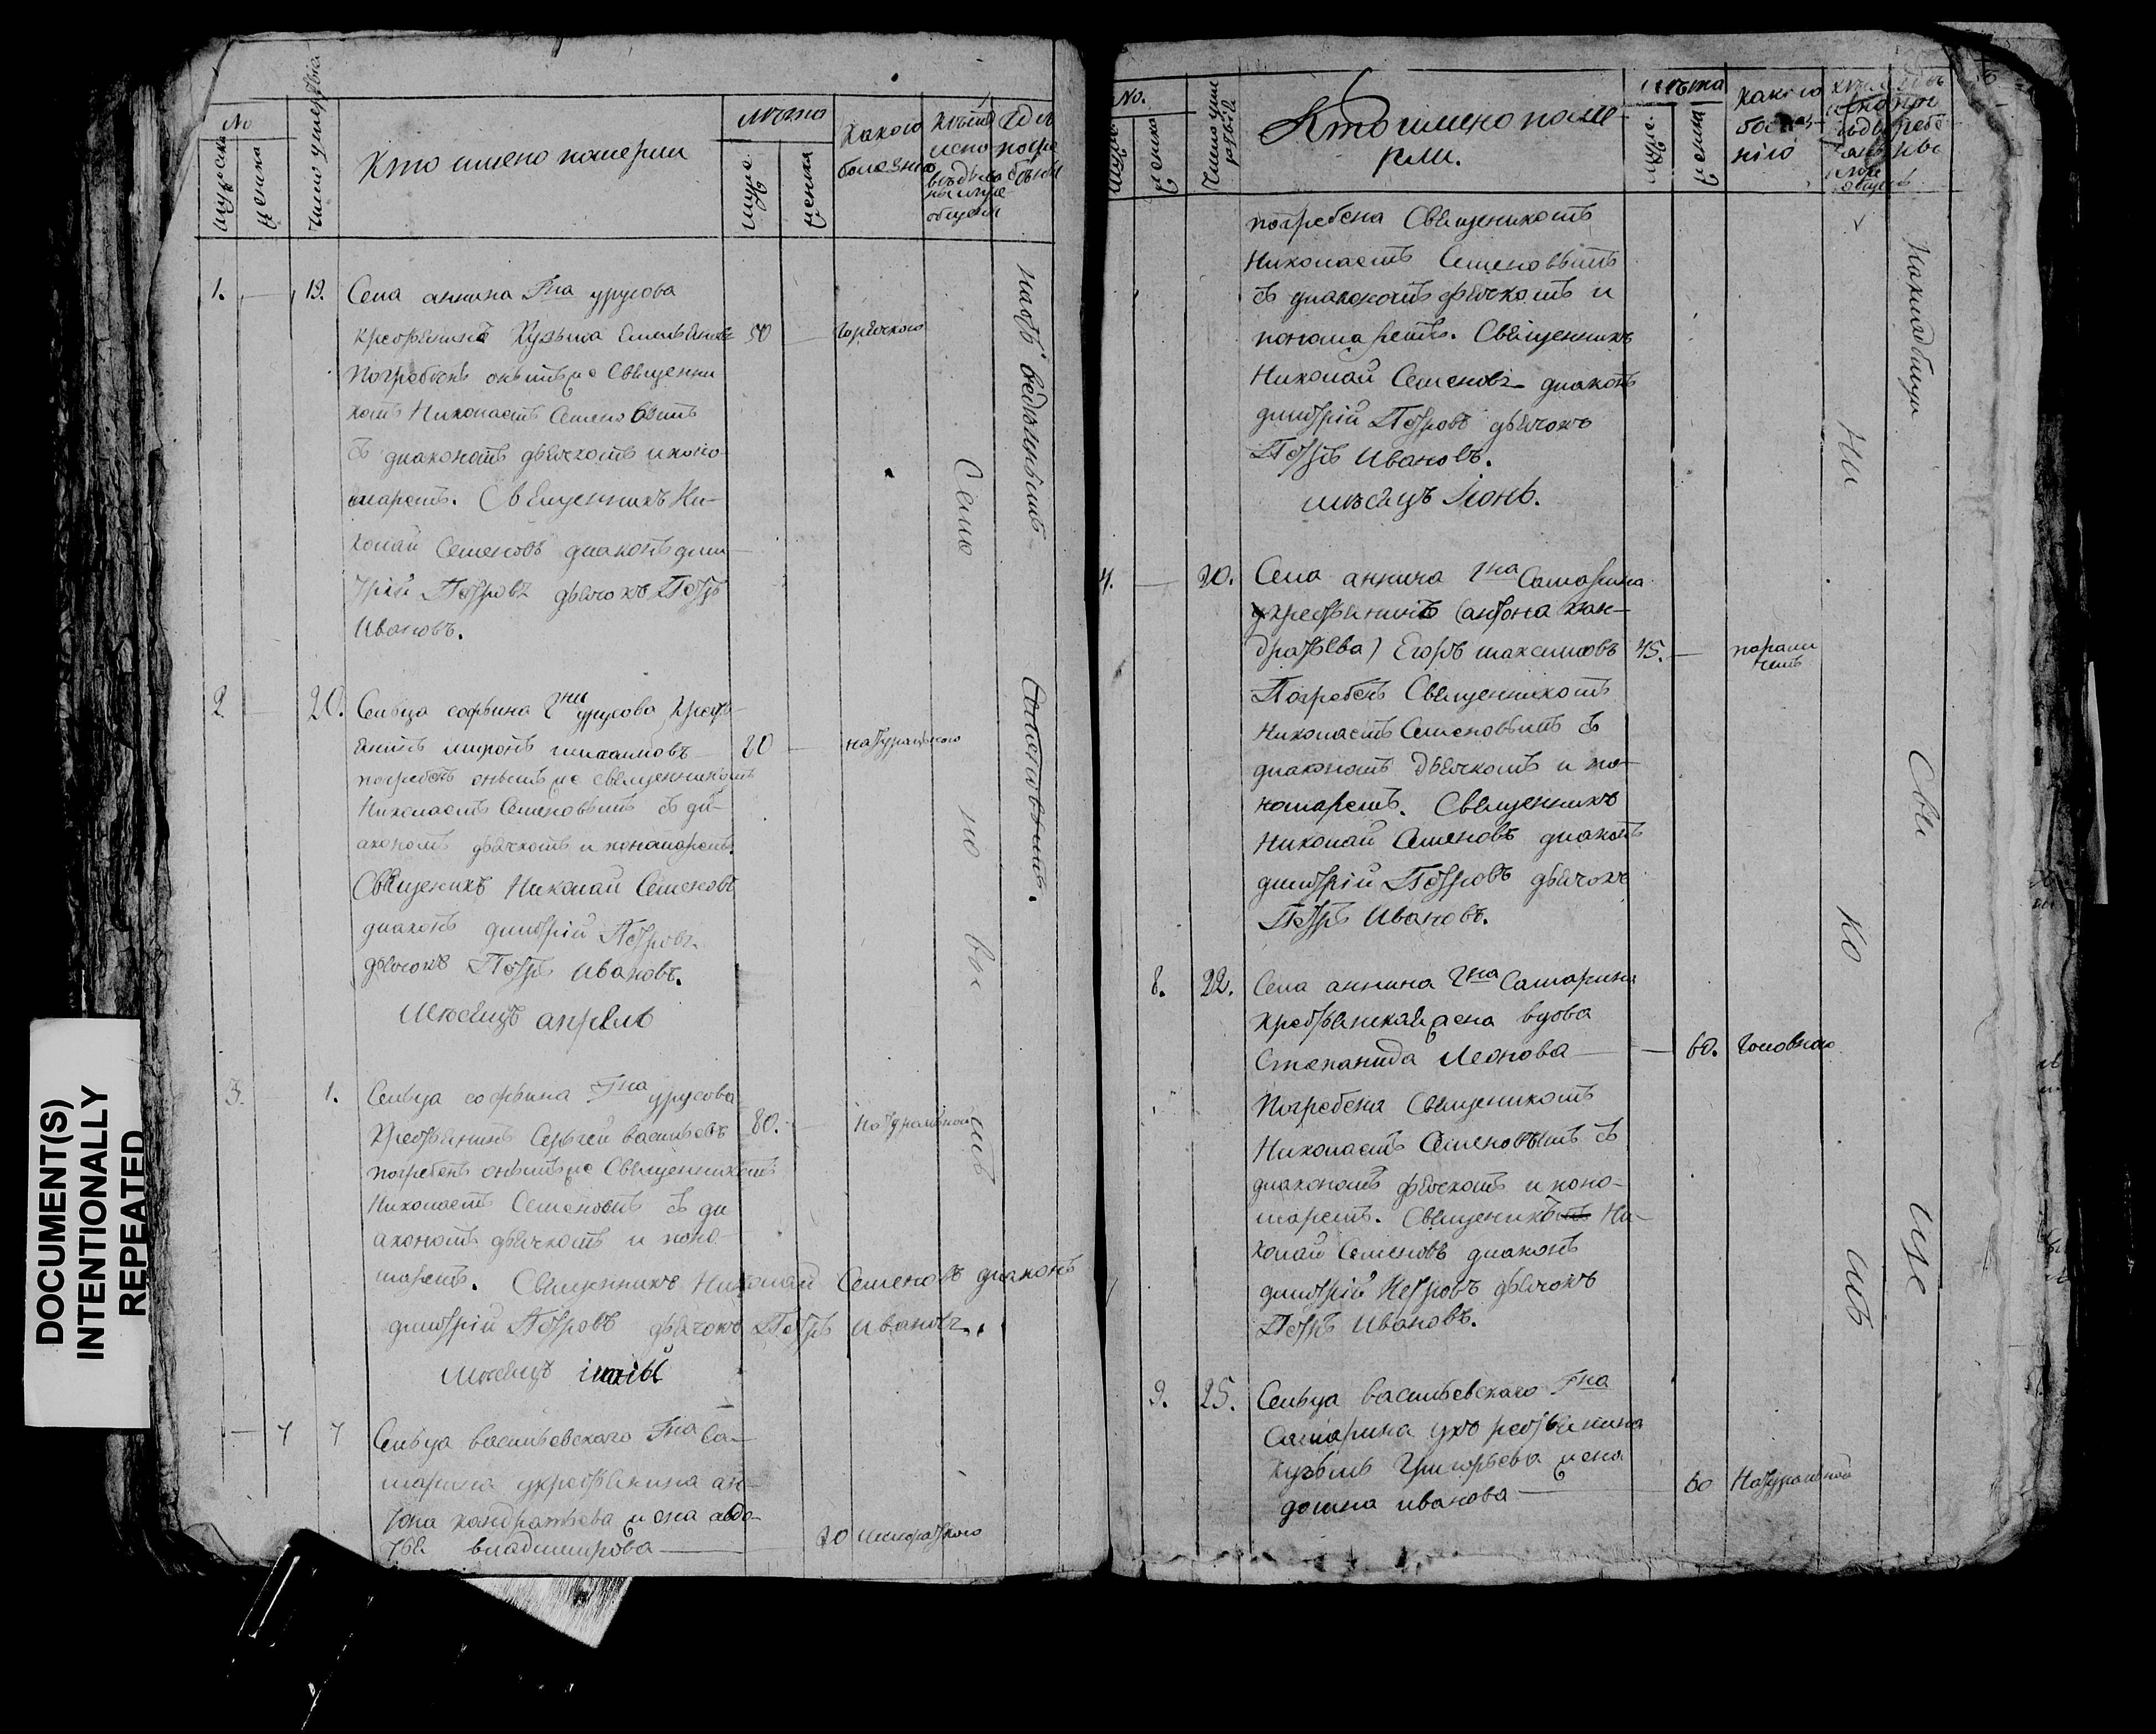 DOCUMENT(S)
INTENTIONALLY
REPEATED
No
мужска
женска
число умертвія
Кто имено померли
лѣта
муже
женска
Какою
болезнію
Кѣмъ
испо
вѣдыва
ны и пре
общены
Гдѣ
погре
бены
1. — 19. Села аннина Гна урусова
крестьянинъ Кузьма Емельяновъ 50 — горячкою
Погребенъ онымъ же Священни
комъ Николаемъ Семеновымъ
съ диакономъ дьячкомъ и поно
маремъ. Священникъ Ни-
колай Семеновъ диаконъ дми
трій Петровъ дьячокъ Петръ
Ивановъ.
2 — 20. Сельца софьина Гни урусова крестья
янинъ миронъ михаиловъ 80 — натуральною
погребенъ онымъ же священникомъ
Николаемъ Семеновымъ съ ди-
акономъ дьячкомъ и пономаремъ.
Священикъ Николай Семеновъ
диаконъ димитрій Петровъ
дьячокъ Петръ Ивановъ.
Месяцъ апрель
3. 1. Сельца софьина Гна урусова
Крестьянинъ Сергей васильевъ 80. — натуральною
погребенъ онымъ же Священникомъ
Николаемъ Семеновымъ съ ди
акономъ дьячкомъ и поно-
маремъ. Священникъ Николай Семеновъ диаконъ
димитрій Петровъ дьячокъ Петръ Ивановъ.
Месяцъ маій
— 7 7 Сельца васильевскаго Гна Са-
марина у крестьянина ан-
тона кандратьева жена авдо-
тья владимирова — 20
Семо но вы мъ
No.
женско
Число уме
ртвія
Кто имено поме
рли.
лѣта
муже.
женска
какою
болез-
нію
погребена Священикомъ
Николаемъ Семеновымъ
съ диакономъ дьячкомъ и
пономаремъ. Священникъ
Николай Семеновъ диаконъ
димитрій Петровъ дьячокъ
Петръ Ивановъ.
мѣсяцъ Іюнь.
4. — 20. Села аннина Гна Самарина
у крестьянинъ (антона кан-
дратьева) Егоръ максимовъ 45. — парали
чемъ
Погребенъ Священникомъ
Николаемъ Семеновымъ съ
диакономъ дьячкомъ и по-
номаремъ. Священникъ
Николай Семеновъ диаконъ
димитрій Петровъ дьячокъ
Петръ Ивановъ.
8. 22. Села аннина Гна Самарина
крестьянская жена вдова
Степанида Леонова — — 60. головною
Погребена Священикомъ
Николаемъ Семеновымъ съ
диакономъ дьячкомъ и поно-
маремъ. Священикъ Ни-
колай Семеновъ диаконъ
димитрій Петровъ дьячокъ
Петръ Ивановъ.
9. 25. Сельца васильевскаго Гна
Самарина у крестьянина
кузьмы Григорьева жена
домна иванова — 60 Натуральною
Ни ко мъ
На кладбищи
Свя ще